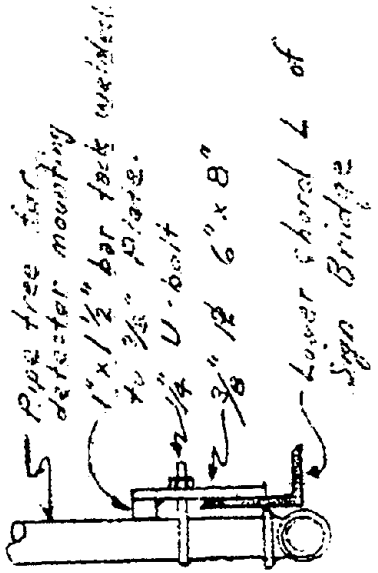 Pipe tree for
detector mounting
1" x 1 1/2" bar tack welded
to 3/8" Plate.
1/4" U-bolt
3/8" PL 6" x 8"
Lower chord L of
Sign Bridge